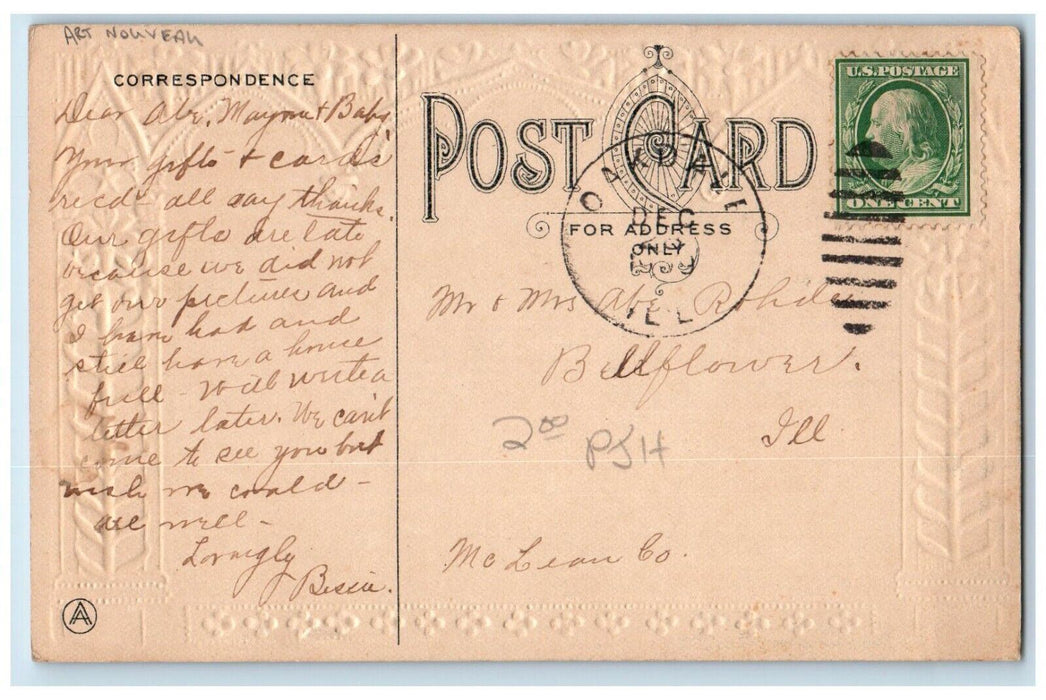 ART NOUVEAU
CORRESPONDENCE
Dear Abe, Mayme & Baby,
Your gifts & cards
recd - all say thanks.
Our gifts are late
because we did not
get our pictures and
I have had and
still have a house
full - Will write a
letter later. We can't
come to see you but
wish we could -
all well -
Lovingly
Bessie.
A
POST CARD
FOR ADDRESS
ONLY
DEC
ILL
U.S. POSTAGE
ONE CENT
Mr & Mrs Abe
Bellflower.
Ill
2 00
PJH
Mc Lean Co.